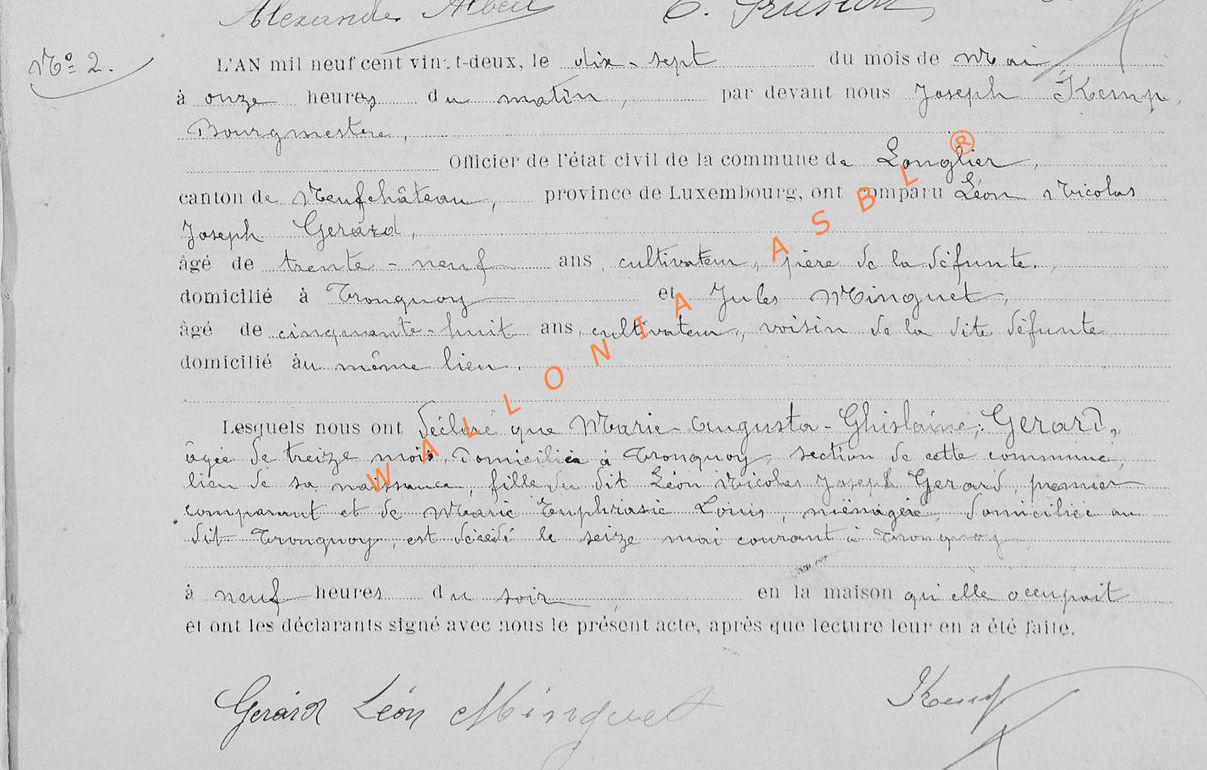 Alexandre Albert
Nº 2.
L'AN mil neuf cent vingt-deux, le dix-sept du mois de Mai
à onze heures du matin, par devant nous Joseph Kemp,
Bourgmestre,
Officier de l'état civil de la commune de Longlier,
canton de Neufchâteau, province de Luxembourg, ont comparu Léon Nicolas
Joseph Gerard,
âgé de trente-neuf ans, cultivateur, père de la défunte,
domicilié à Tronquoy et Jules Minguet,
âgé de cinquante-huit ans, cultivateur, voisin de la dite défunte
domicilié au même lieu.
Lesquels nous ont déclaré que Marie-Augusta-Ghislaine, Gerard,
âgée de treize mois, domiciliée à Tronquoy, section de cette commune,
lieu de sa naissance, fille du dit Léon Nicolas Joseph Gerard, premier
comparant et de Marie Euphrasie Louis, ménagère, domiciliée au
dit Tronquoy, est décédé le seize mai courant à Tronquoy
à neuf heures du soir, en la maison qu'elle occupait
et ont les déclarants signé avec nous le présent acte, après que lecture leur en a été faite.
Gerard Léon Minguet Kemp
WALLONIA ASBL ®